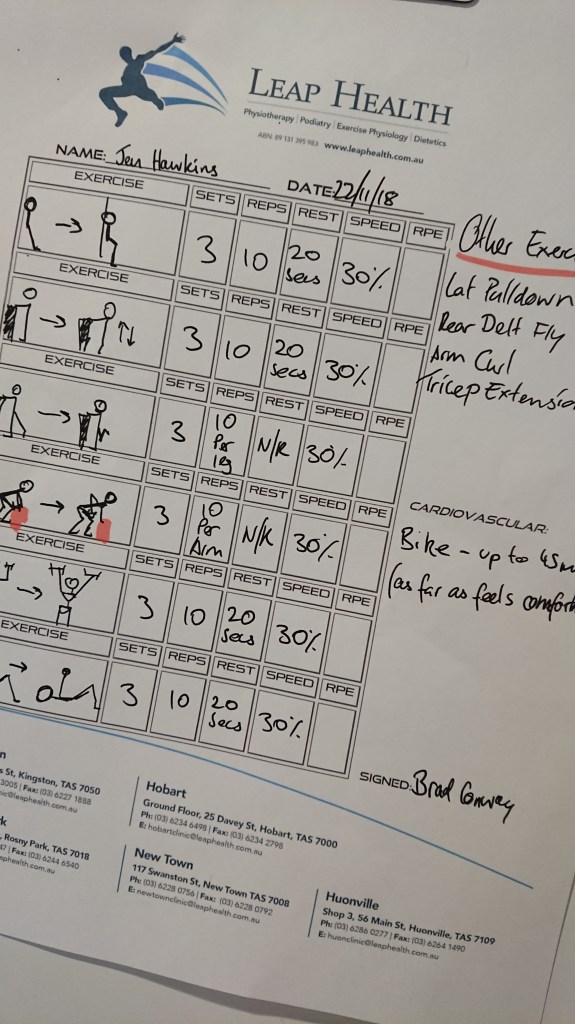 LEAP HEALTH
Physiotherapy | Podiatry | Exercise Physiology | Dietetics
ABN: 89 131 395 983 www.leaphealth.com.au
NAME: Jen Hawkins DATE: 22/11/18
EXERCISE SETS REPS REST SPEED RPE
3 10 20 Secs 30%
EXERCISE SETS REPS REST SPEED RPE
3 10 20 Secs 30%
EXERCISE SETS REPS REST SPEED RPE
3 10 Per leg N/R 30%
EXERCISE SETS REPS REST SPEED RPE
3 10 Per Arm N/R 30%
EXERCISE SETS REPS REST SPEED RPE
3 10 20 Secs 30%
EXERCISE SETS REPS REST SPEED RPE
3 10 20 Secs 30%
Other Exerc
Lat Pulldown
Rear Delt Fly
Arm Curl
Tricep Extensio
CARDIOVASCULAR:
Bike - up to 45m
(as far as feels comfort
SIGNED: Brad Conway
n
s St, Kingston, TAS 7050
3005 | Fax: (03) 6227 1888
nic@leaphealth.com.au
rk
, Rosny Park, TAS 7018
47 | Fax: (03) 6244 6540
aphealth.com.au
Hobart
Ground Floor, 25 Davey St, Hobart, TAS 7000
Ph: (03) 6234 6498 | Fax: (03) 6234 2798
E: hobartclinic@leaphealth.com.au
New Town
117 Swanston St, New Town TAS 7008
Ph: (03) 6228 0756 | Fax: (03) 6228 0792
E: newtownclinic@leaphealth.com.au
Huonville
Shop 3, 56 Main St, Huonville, TAS 7109
Ph: (03) 6286 0277 | Fax: (03) 6264 1490
E: huonclinic@leaphealth.com.au